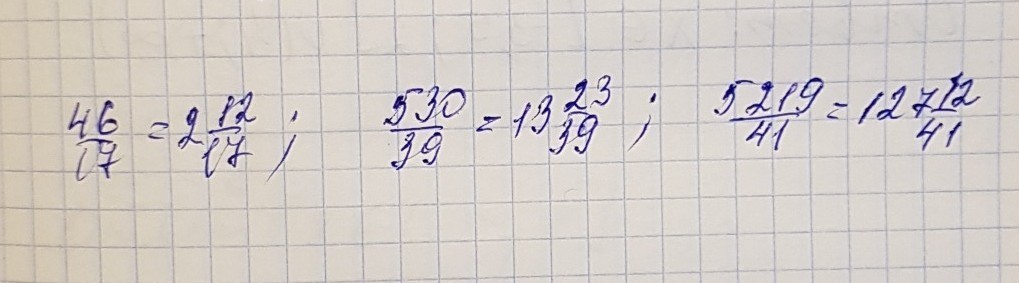 46/17 = 2 12/17 ; 530/39 = 13 23/39 ; 5219/41 = 127 12/41